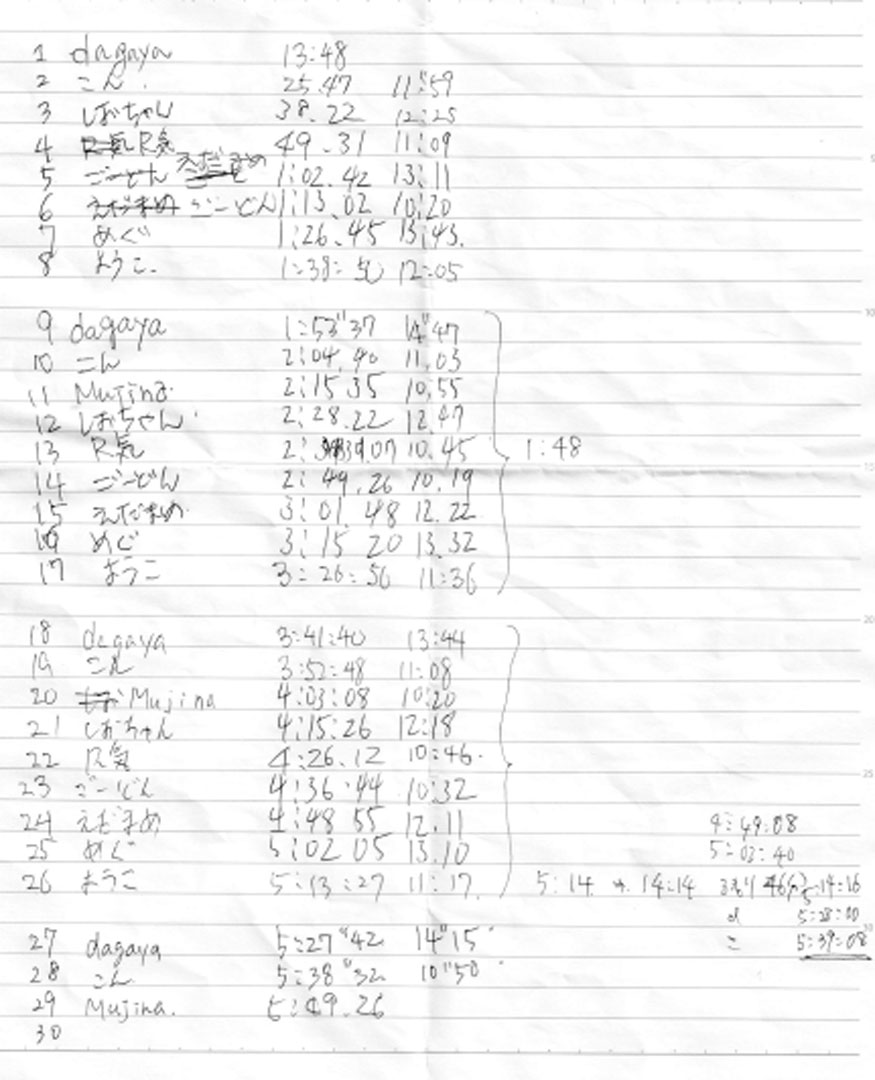 1 dagaya 13:48
2 こん. 25.47 11"59
3 しおちゃん 38.22 12:25
4 R氣 R氣 49.31 11:09
5 ごーどん えだまめ 1:02.42 13:11
6 えだまめ ごーどん 1:13.02 10:20
7 めぐ 1:26.45 13:43.
8 ようこ. 1:38:50 12:05
9 dagaya 1:53"37 14"47
10 こん 2:04.40 11.03
11 Mujina 2:15 35 10:55
12 しおちゃん 2:28.22 12.47
13 R氣 2: 39.07 10.45 1:48
14 ごーどん 2:49.26 10.19
15 えだまめ 3:01 48 12.22
16 めぐ 3:15 20 13.32
17 ようこ 3:26:56 11:36
18 dagaya 3:41:40 13:44
19 こん 3:52:48 11:08
20 しお Mujina 4:03:08 10:20
21 しおちゃん 4:15:26 12:18
22 R氣 4:26.12 10:46.
23 ごーどん 4:36.44 10:32
24 えだまめ 4:48 55 12.11
4:49:08
25 めぐ 5:02 05 13.10
5:03:40
26 ようこ 5:13:27 11:17 5:14 14:14 14:16
d 5:28:00
27 dagaya 5:27"42 14"15
こ 5:39:08
28 こん 5:38"32 10"50
29 Mujina. 5:49.26
30